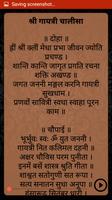 Saving screenshot...
श्री गायत्री चालीसा
॥ दोहा ॥
ह्रीं श्रीं क्लीं मेधा प्रभा जीवन ज्योति
प्रचण्ड ॥
शान्ति कान्ति जागृत प्रगति रचना
शक्ति अखण्ड ॥ १ ॥
जगत जननी मङ्गल करनि गायत्री
सुखधाम ।
प्रणवों सावित्री स्वधा स्वाहा पूरन
काम ॥ २ ॥
भूर्भुवः स्वः ॐ युत जननी ।
गायत्री नित कलिमल दहनी ॥
अक्षर चौविस परम पुनीता ।
इनमें बसें शास्त्र श्रुति गीता ॥
शाश्वत सतोगुणी सत रूपा ।
सत्य सनातन सुधा अनूपा ।